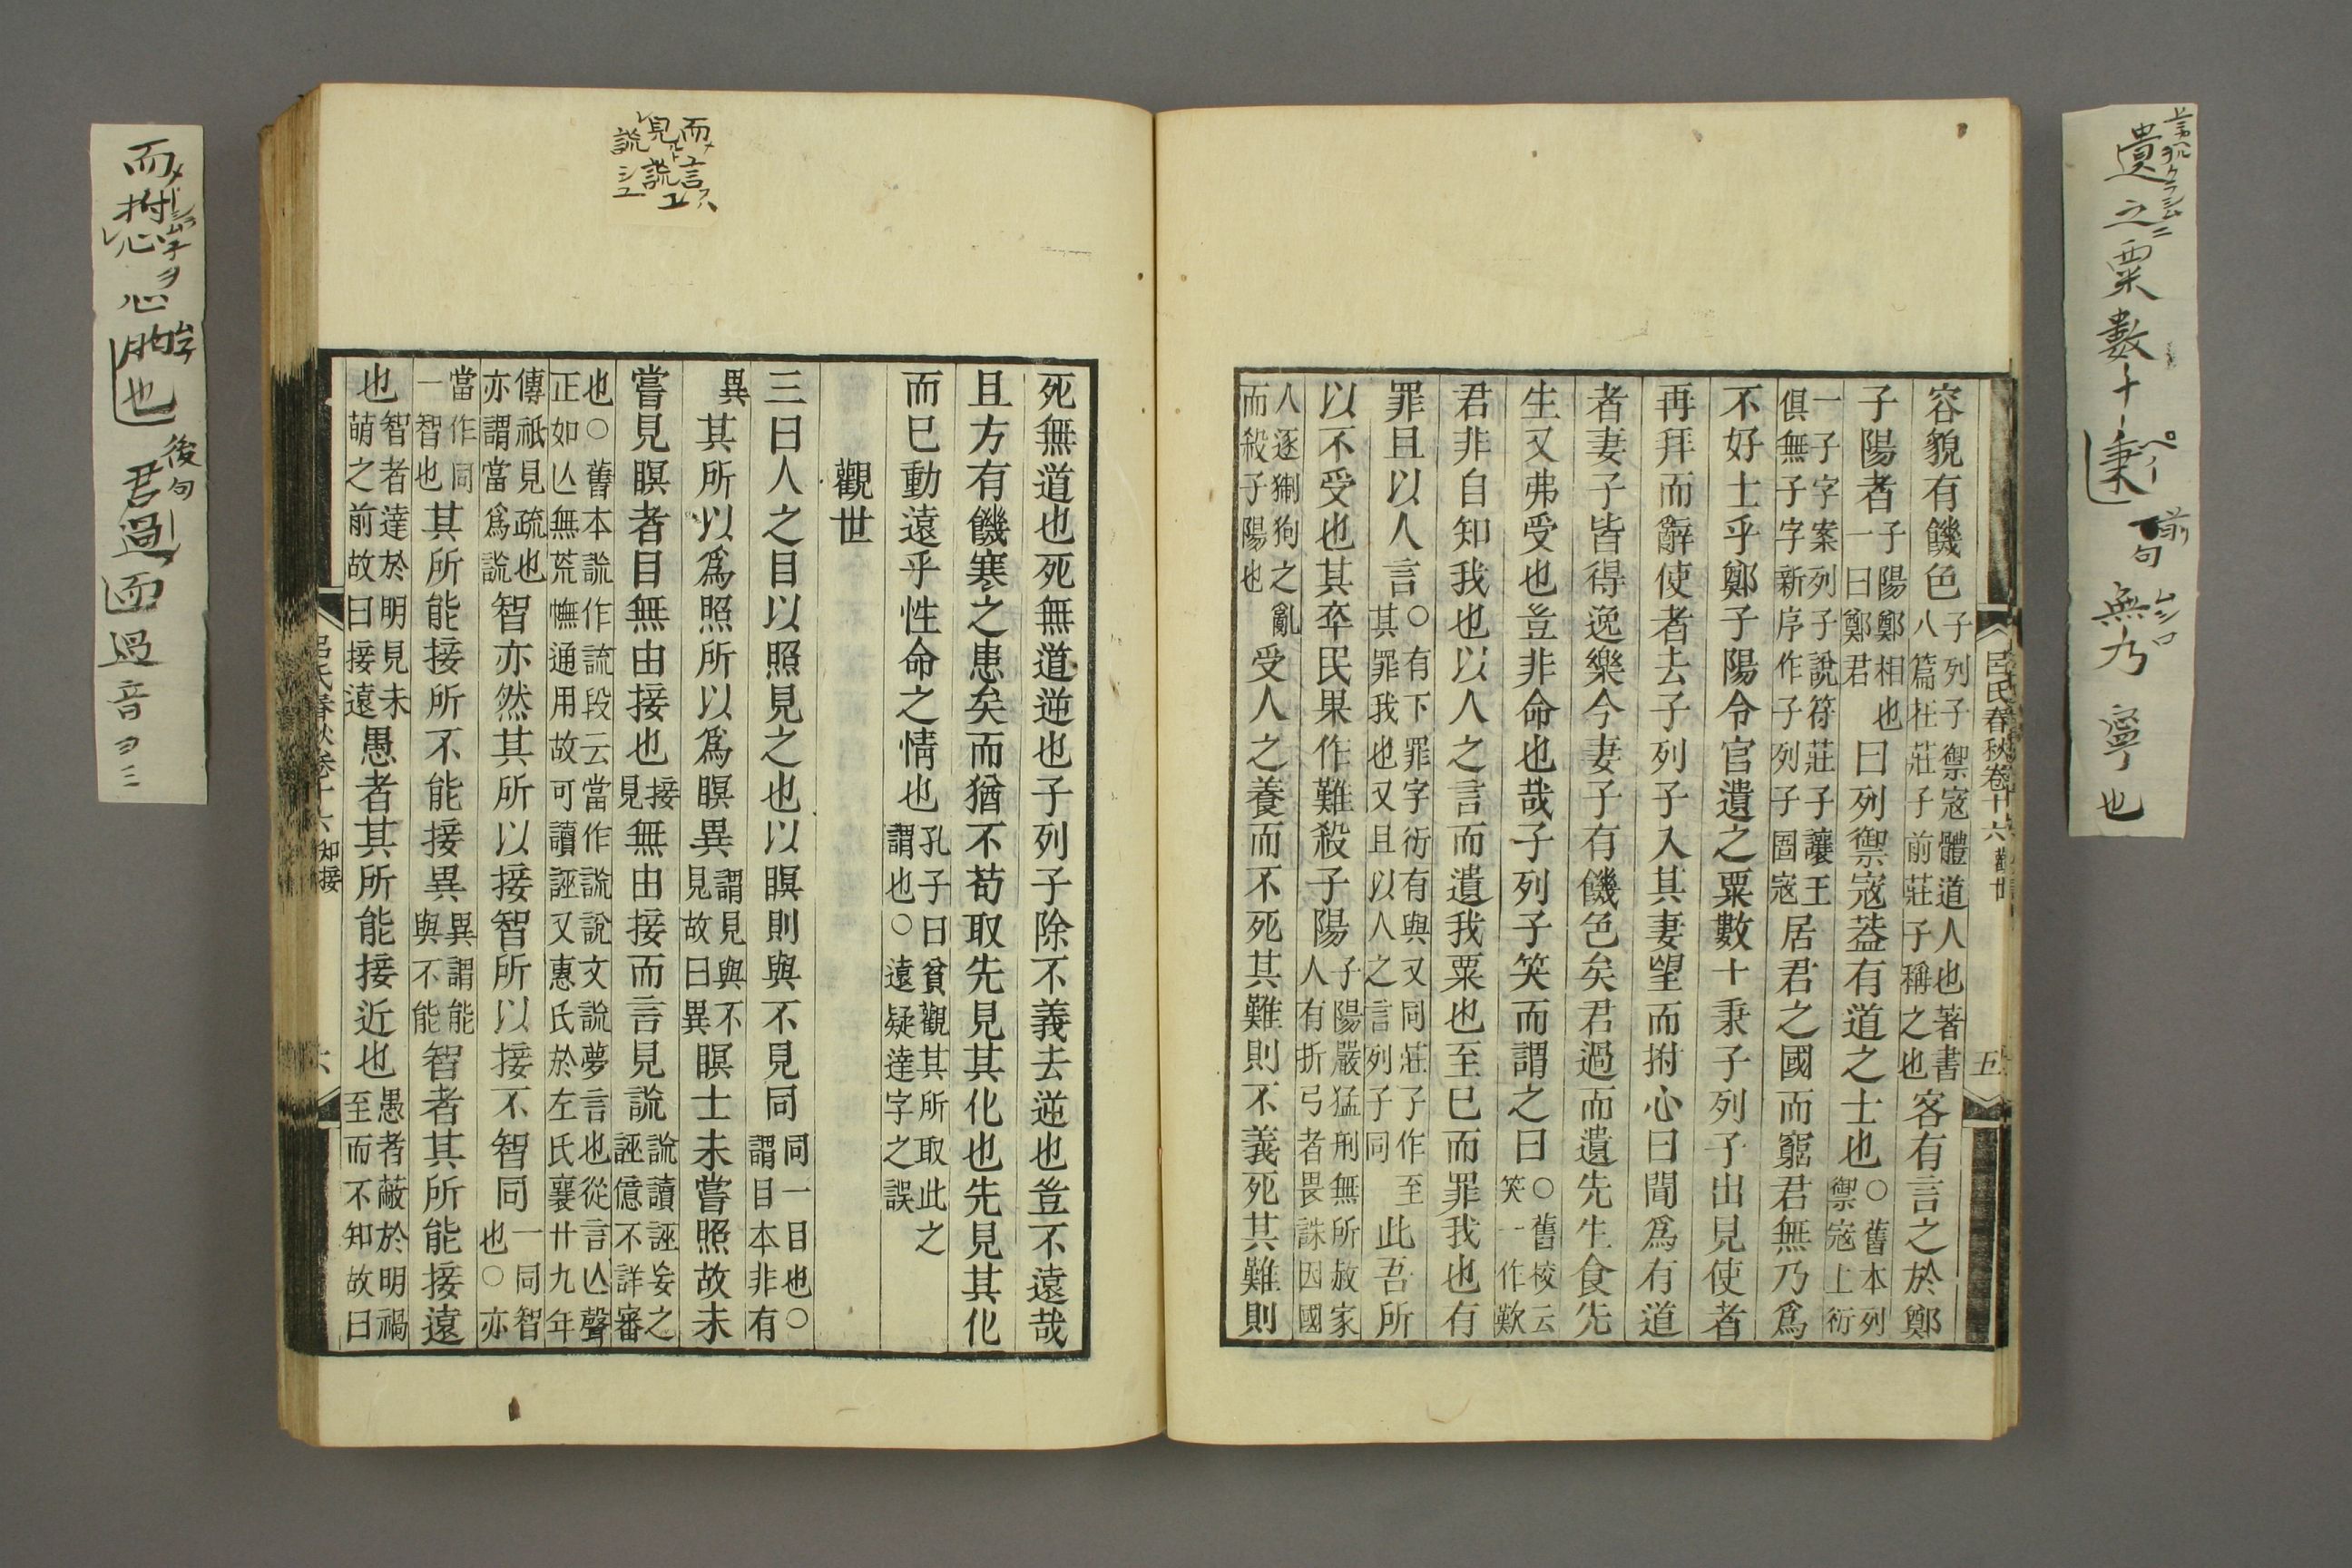 遺之粟數十秉
前句
無乃寧也
呂氏春秋卷十六 觀世 五
容貌有饑色子列子禦寇體道人也著書八篇在莊子前莊子稱之也客有言之於鄭
子陽者子陽鄭相也一曰鄭君曰列禦寇葢有道之士也○舊本列禦寇上衍
一子字案列子說符莊子讓王俱無子字新序作子列子圄寇居君之國而窮君無乃爲
不好士乎鄭子陽令官遺之粟數十秉子列子出見使者
再拜而辭使者去子列子入其妻望而拊心曰聞爲有道
者妻子皆得逸樂今妻子有饑色矣君過而遺先生食先
生又弗受也豈非命也哉子列子笑而謂之曰○舊校云笑一作歎
君非自知我也以人之言而遺我粟也至已而罪我也有
罪且以人言○有下罪字衍有與又同莊子作至其罪我也又且以人之言列子同此吾所
以不受也其卒民果作難殺子陽子陽嚴猛刑無所赦家人有折弓者畏誅因國
人逐猘狗之亂而殺子陽也受人之養而不死其難則不義死其難則
死無道也死無道逆也子列子除不義去逆也豈不遠哉
且方有饑寒之患矣而猶不苟取先見其化也先見其化
而已動遠乎性命之情也孔子曰貧觀其所取此之謂也○遠疑達字之誤
觀世
三曰人之目以照見之也以瞑則與不見同同一目也○謂目本非有
異其所以爲照所以爲瞑異謂見與不見故曰異瞑士未嘗照故未
嘗見瞑者目無由接也接見無由接而言見謊謊讀誣妄之誣億不詳審
也○舊本謊作䛇段云當作謊說文謊夢言也從言亡聲正如亾無荒幠通用故可讀誣又惠氏於左氏襄廿九年
傳祇見疏也亦謂當爲謊智亦然其所以接智所以接不智同一同智也○亦
當作同一智也其所能接所不能接異異謂能與不能智者其所能接遠
也智者達於明見未萌之前故曰接遠愚者其所能接近也愚者蔽於明禍至而不知故曰
呂氏春秋卷十六 知接 六
而言
見謊
謊
而拊心
心胸也
後句
君過而過音ヲミ